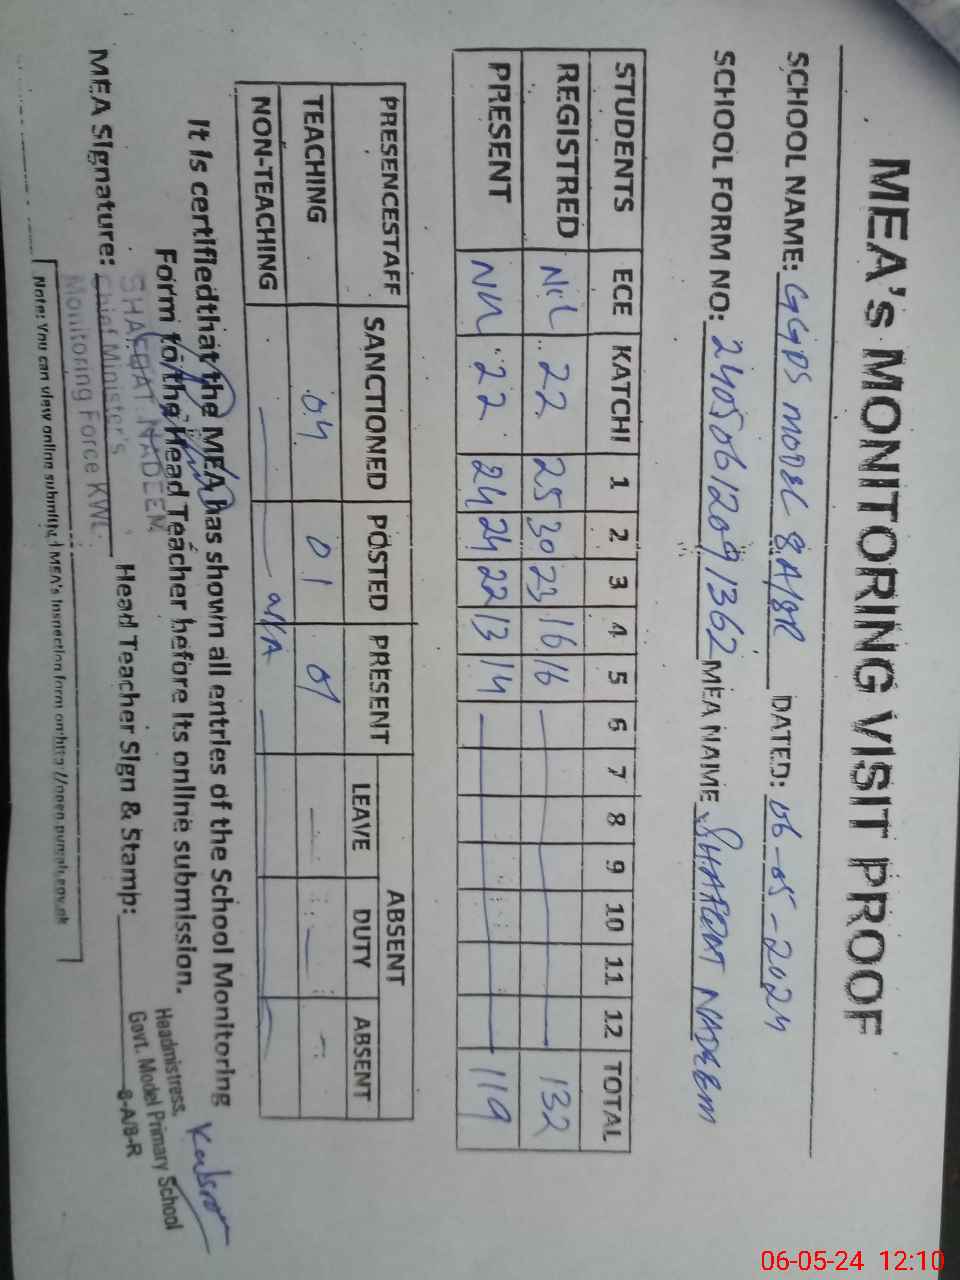 MEA's MONITORING VISIT PROOF
SCHOOL NAME: GGPS model 8A/8R DATED: 06-05-2024
SCHOOL FORM NO: 24050612091362 MEA NAME SHAFQAT NADEEM
STUDENTS ECE KATCHI 1 2 3 4 5 6 7 8 9 10 11 12 TOTAL
REGISTRED Nil 22 25 30 23 16 16 132
PRESENT Nil 22 24 24 22 13 14 119
PRESENCESTAFF SANCTIONED POSTED PRESENT ABSENT
LEAVE DUTY ABSENT
TEACHING 04 01 01
NON-TEACHING N/A
It is certifiedthat the MEA has shown all entries of the School Monitoring
Form to the Head Teacher before its online submission.
SHAFQAT NADEEM
Chief Minister's
Monitoring Force KWL
MEA Signature: Head Teacher Sign & Stamp:
Headmistress,
Govt. Model Primary School
8-A/8-R
Note: You can view online submitted MEA's Inspection form on http://open.punjab.gov.pk
06-05-24 12:10